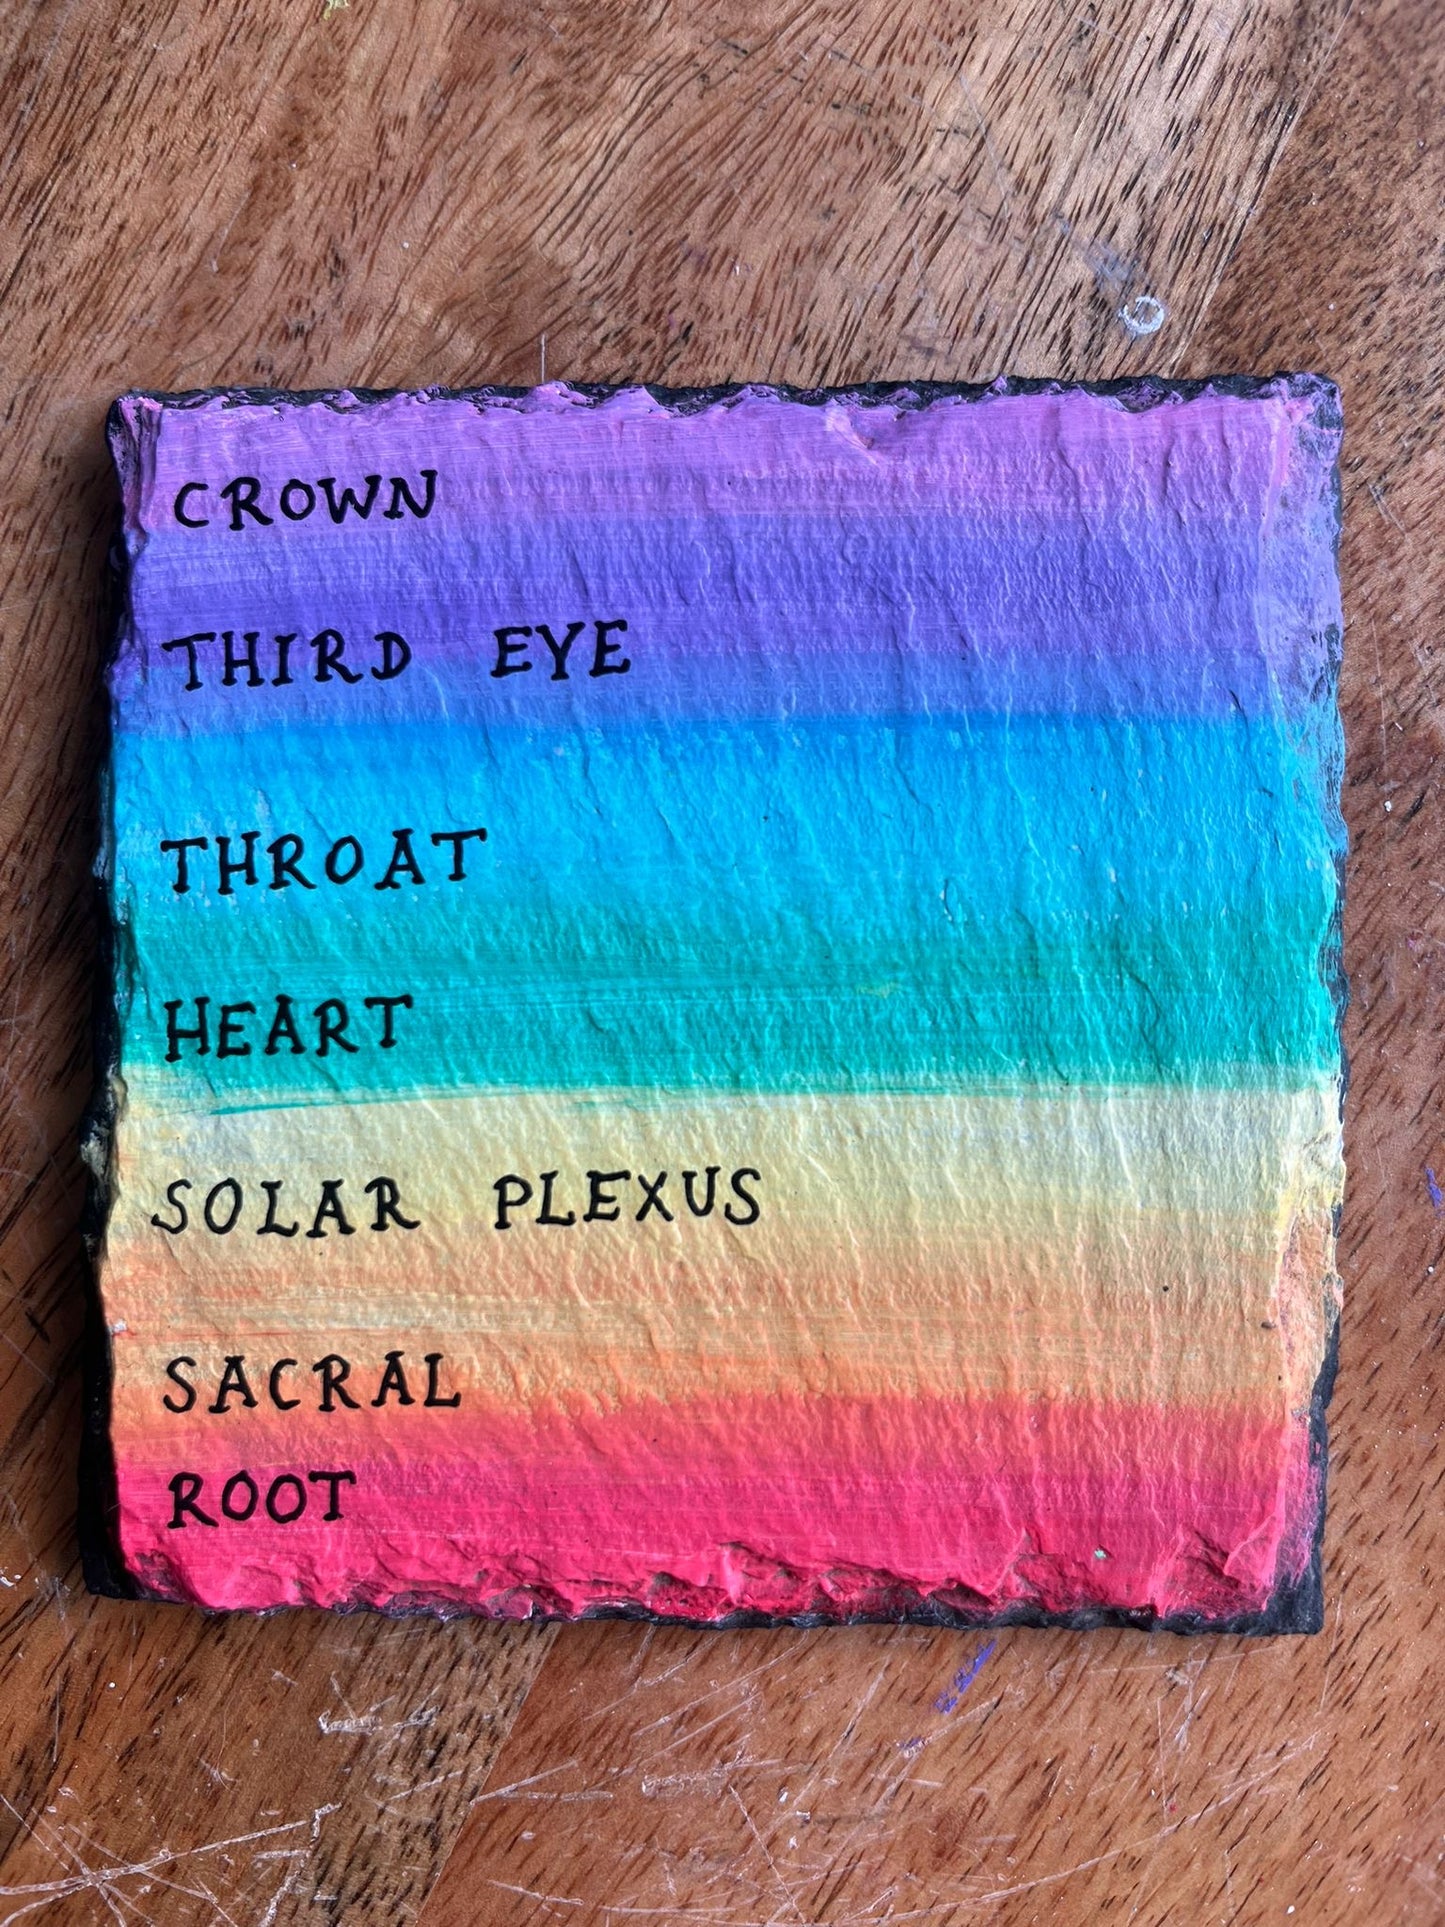 CROWN
THIRD EYE
THROAT
HEART
SOLAR PLEXUS
SACRAL
ROOT